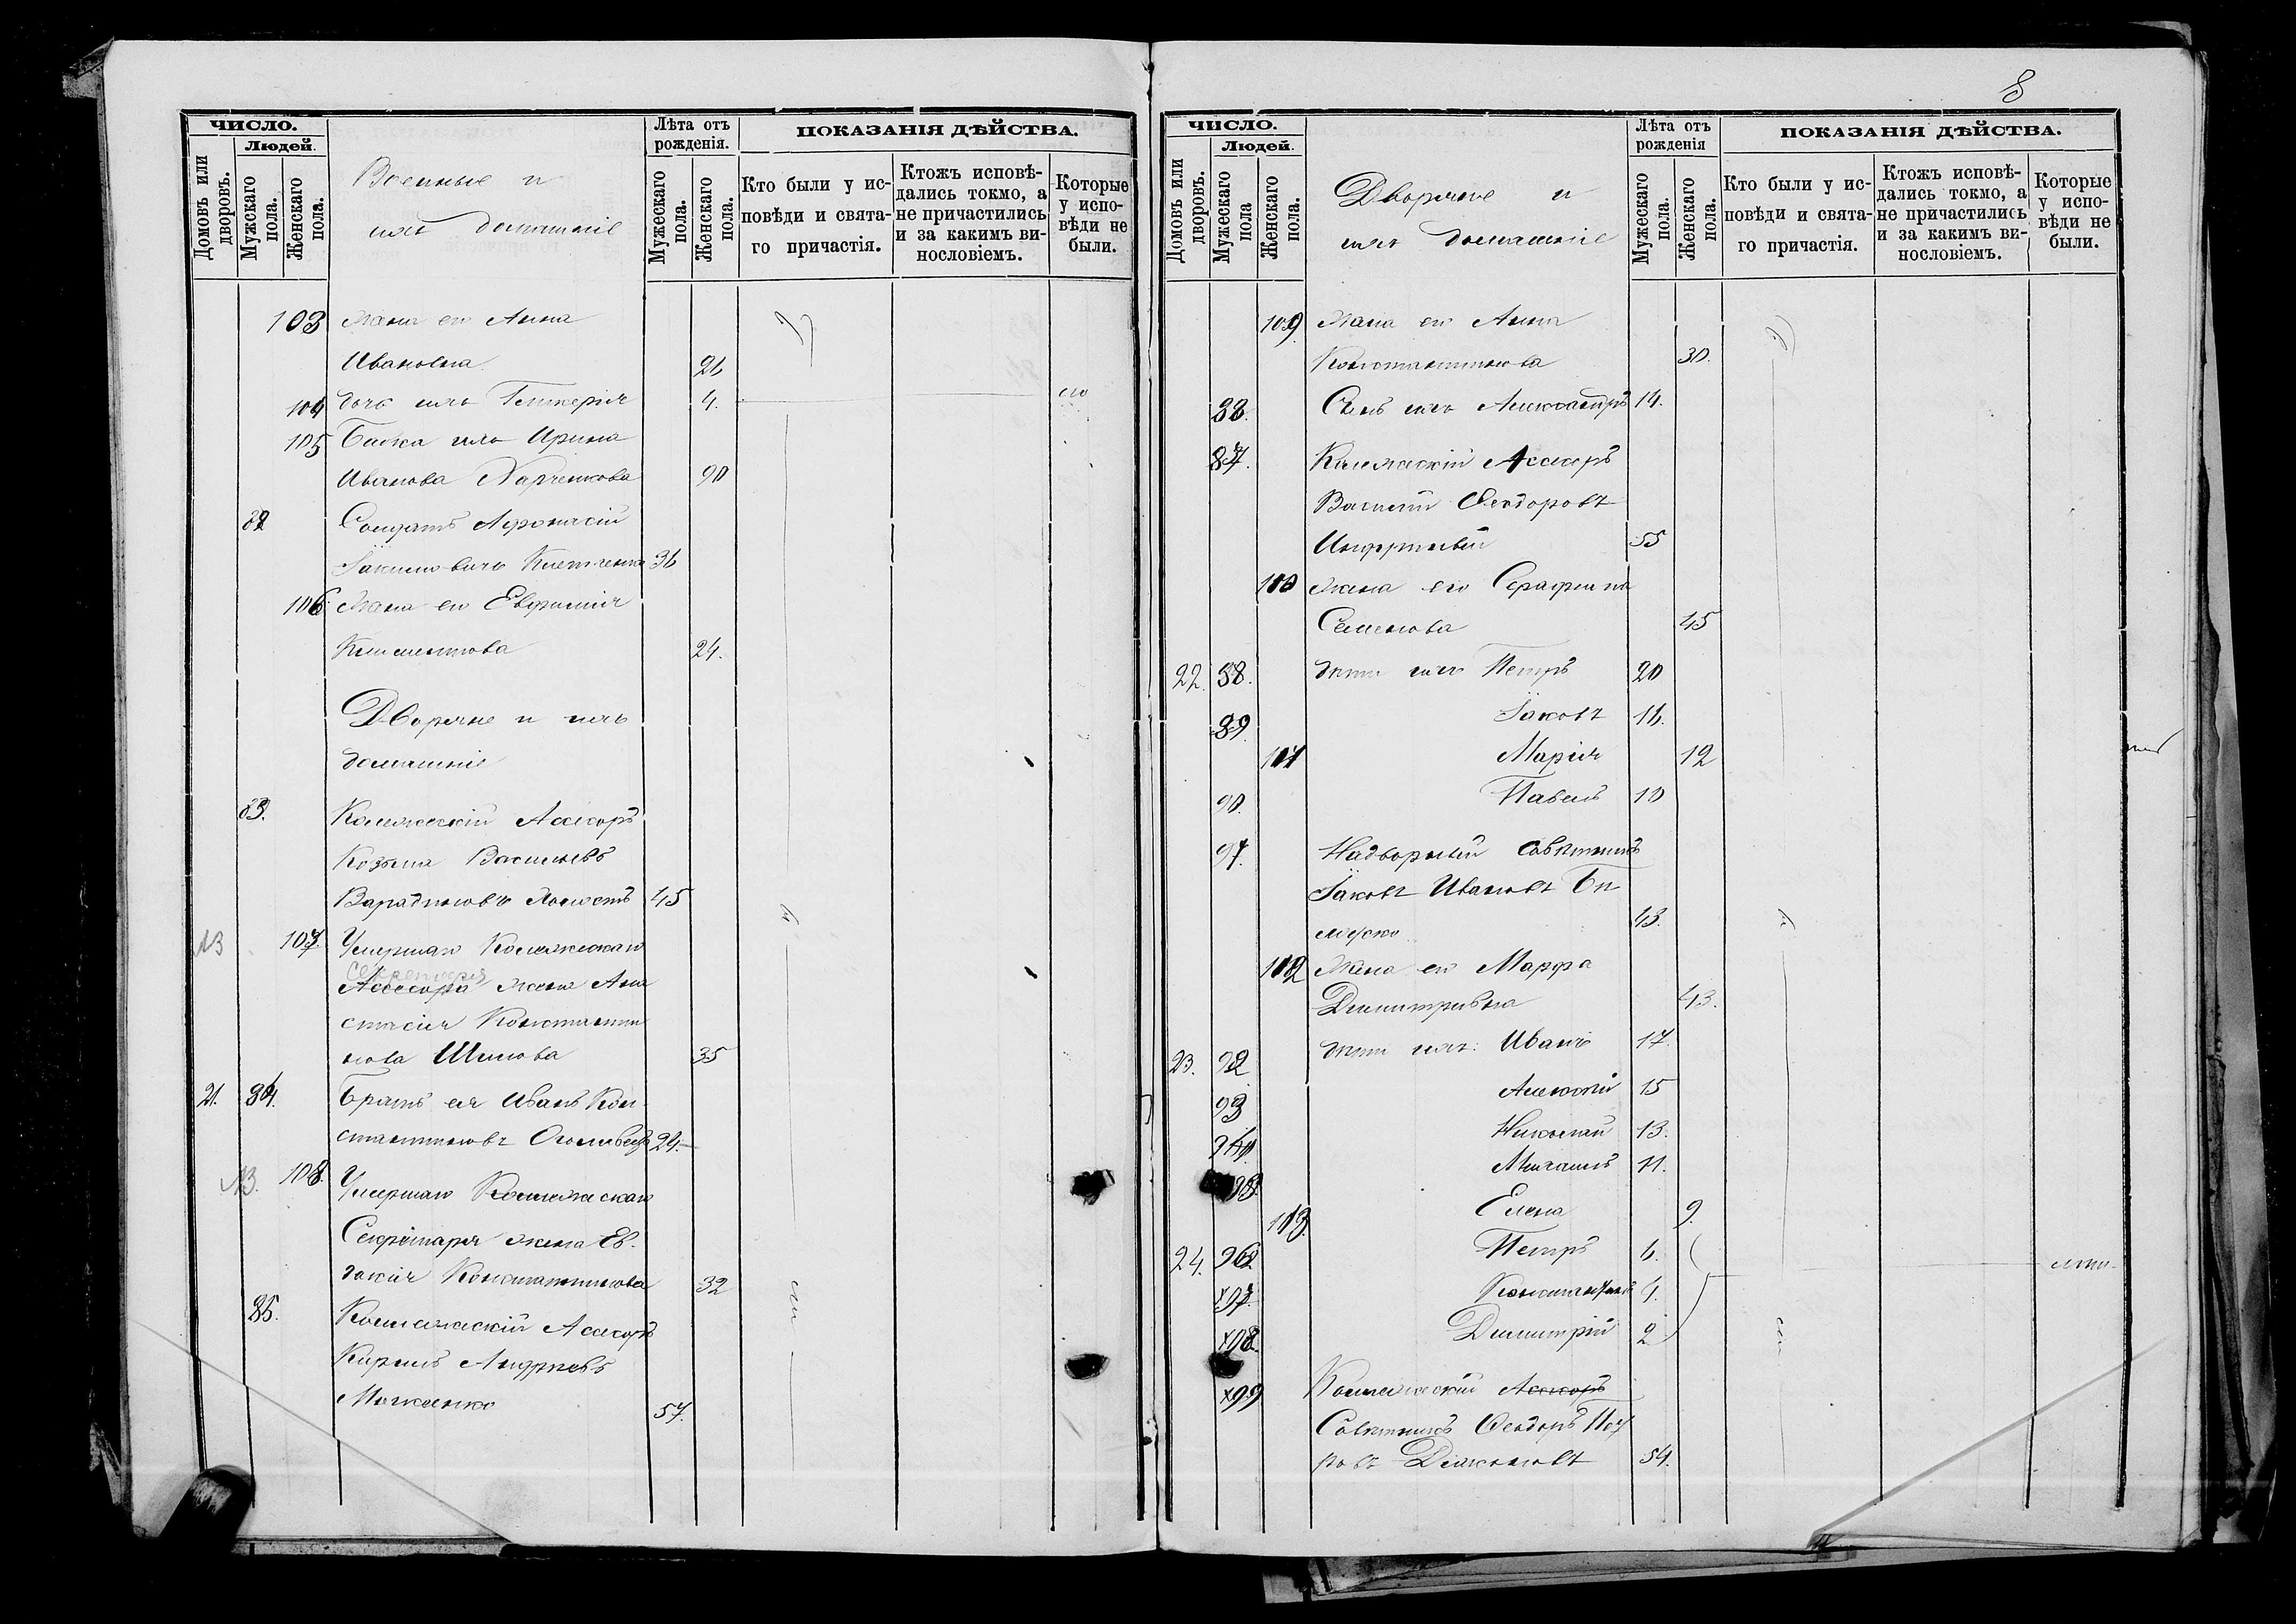 ЧИСЛО.
Людей.
Домовъ или дворовъ.
Мужскаго пола.
Женскаго пола.
Военные и
ихъ домашніе
Лѣта отъ рожденія.
Мужескаго пола.
Женскаго пола.
ПОКАЗАНІЯ ДѢЙСТВА.
Кто были у исповѣди и святаго причастія.
Ктожъ исповѣдались токмо, а не причастились и за какимъ винословіемъ.
Которые у исповѣди не были.
103 Жена его Анна
Ивановна 26
104 дочь ихъ Гликерія 4.
105 Бабка ихъ Ирина
Иванова Харченкова 90
82 Солдатъ Афонасій
Іакимовичъ 36
106 Жена его Евфимія
Климентова 24.
Дворяне и ихъ
домашніе
83. Коллежскій Асесоръ
Козьма Васильевъ
Варадиновъ холостъ 45
107. Умершаго Коллежскаго
Секретаря
Асесора жена Ана
стасія Константи
нова Шилова 35
21. 84. Братъ ея Иванъ Кон
стантиновъ 24.
108. Умершаго Коллежскаго
Секретаря жена Ев
докія Константинова 32
85. Коллежскій Асесоръ
Кирилъ Андреевъ
57.
8
ЧИСЛО.
Людей.
Домовъ или дворовъ.
Мужескаго пола
Женскаго пола.
Дворяне и
ихъ домашніе
Лѣта отъ рожденія
Мужескаго пола.
Женскаго пола.
ПОКАЗАНІЯ ДѢЙСТВА.
Кто были у исповѣди и святаго причастія.
Ктожъ исповѣдались токмо, а не причастились и за какимъ винословіемъ.
Которые у исповѣди не были.
109 Жена его Анна
Константинова 30.
Сынъ ихъ Александръ 14.
87. Коллежскій Асесоръ
Василій Феодоровъ
55
110 Жена его Серафима
Семенова 45
22. 88. дѣти ихъ Петръ 20
89. Іаковъ 16.
111 Марія 12
90. Павелъ 10
91. Надворный Совѣтникъ
Іаковъ Ивановъ
43.
112 Жена его Марфа
Димитріевна 43.
23. 92 дѣти ихъ: Иванъ 17.
93 Алексѣй 15
94 Николай 13.
Михаилъ 11.
113. Елена 9.
24. 96. Петръ 6.
97. Константинъ 4.
98. Димитрій 2
99 Коллежскій Асесоръ
Совѣтникъ Феодоръ Пет
ровъ 54.